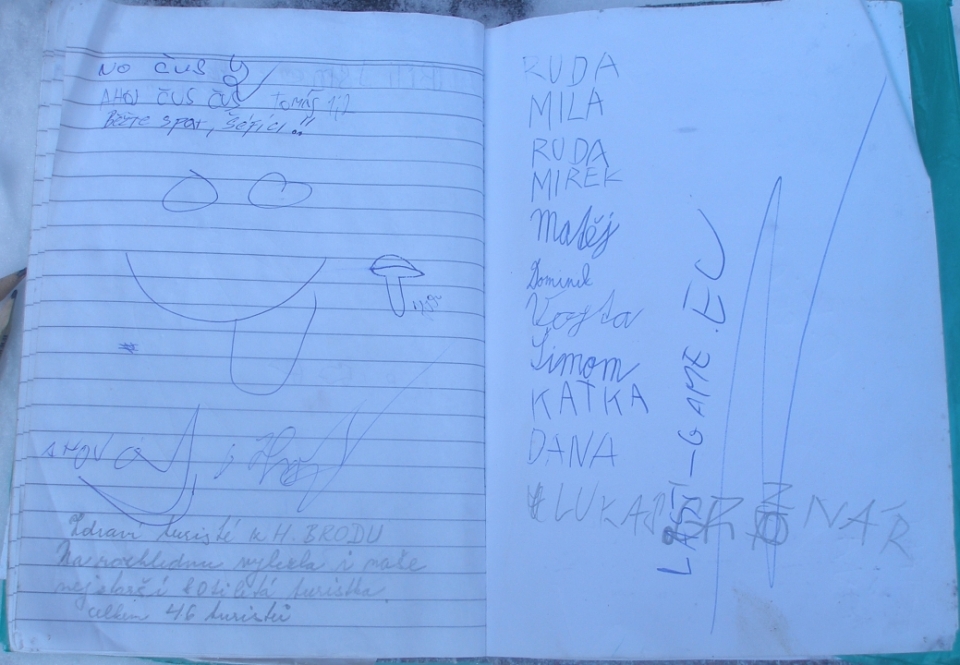 NO ČUS
AHOJ ČUS ČUS TOMÁŠ
Běžte spat, šéfíci..!!
AHOJ
Zdraví turisté z H. BRODU
Na rozhlednu vylezla i naše
nejstarší 80tiletá turistka
celkem 46 turistů
RUDA
MILA
RUDA
MIREK
Matěj
Dominik
Vojta
Šimom
KATKA
DANA
LUKÁŠ
LAŠTI-GAME.EU